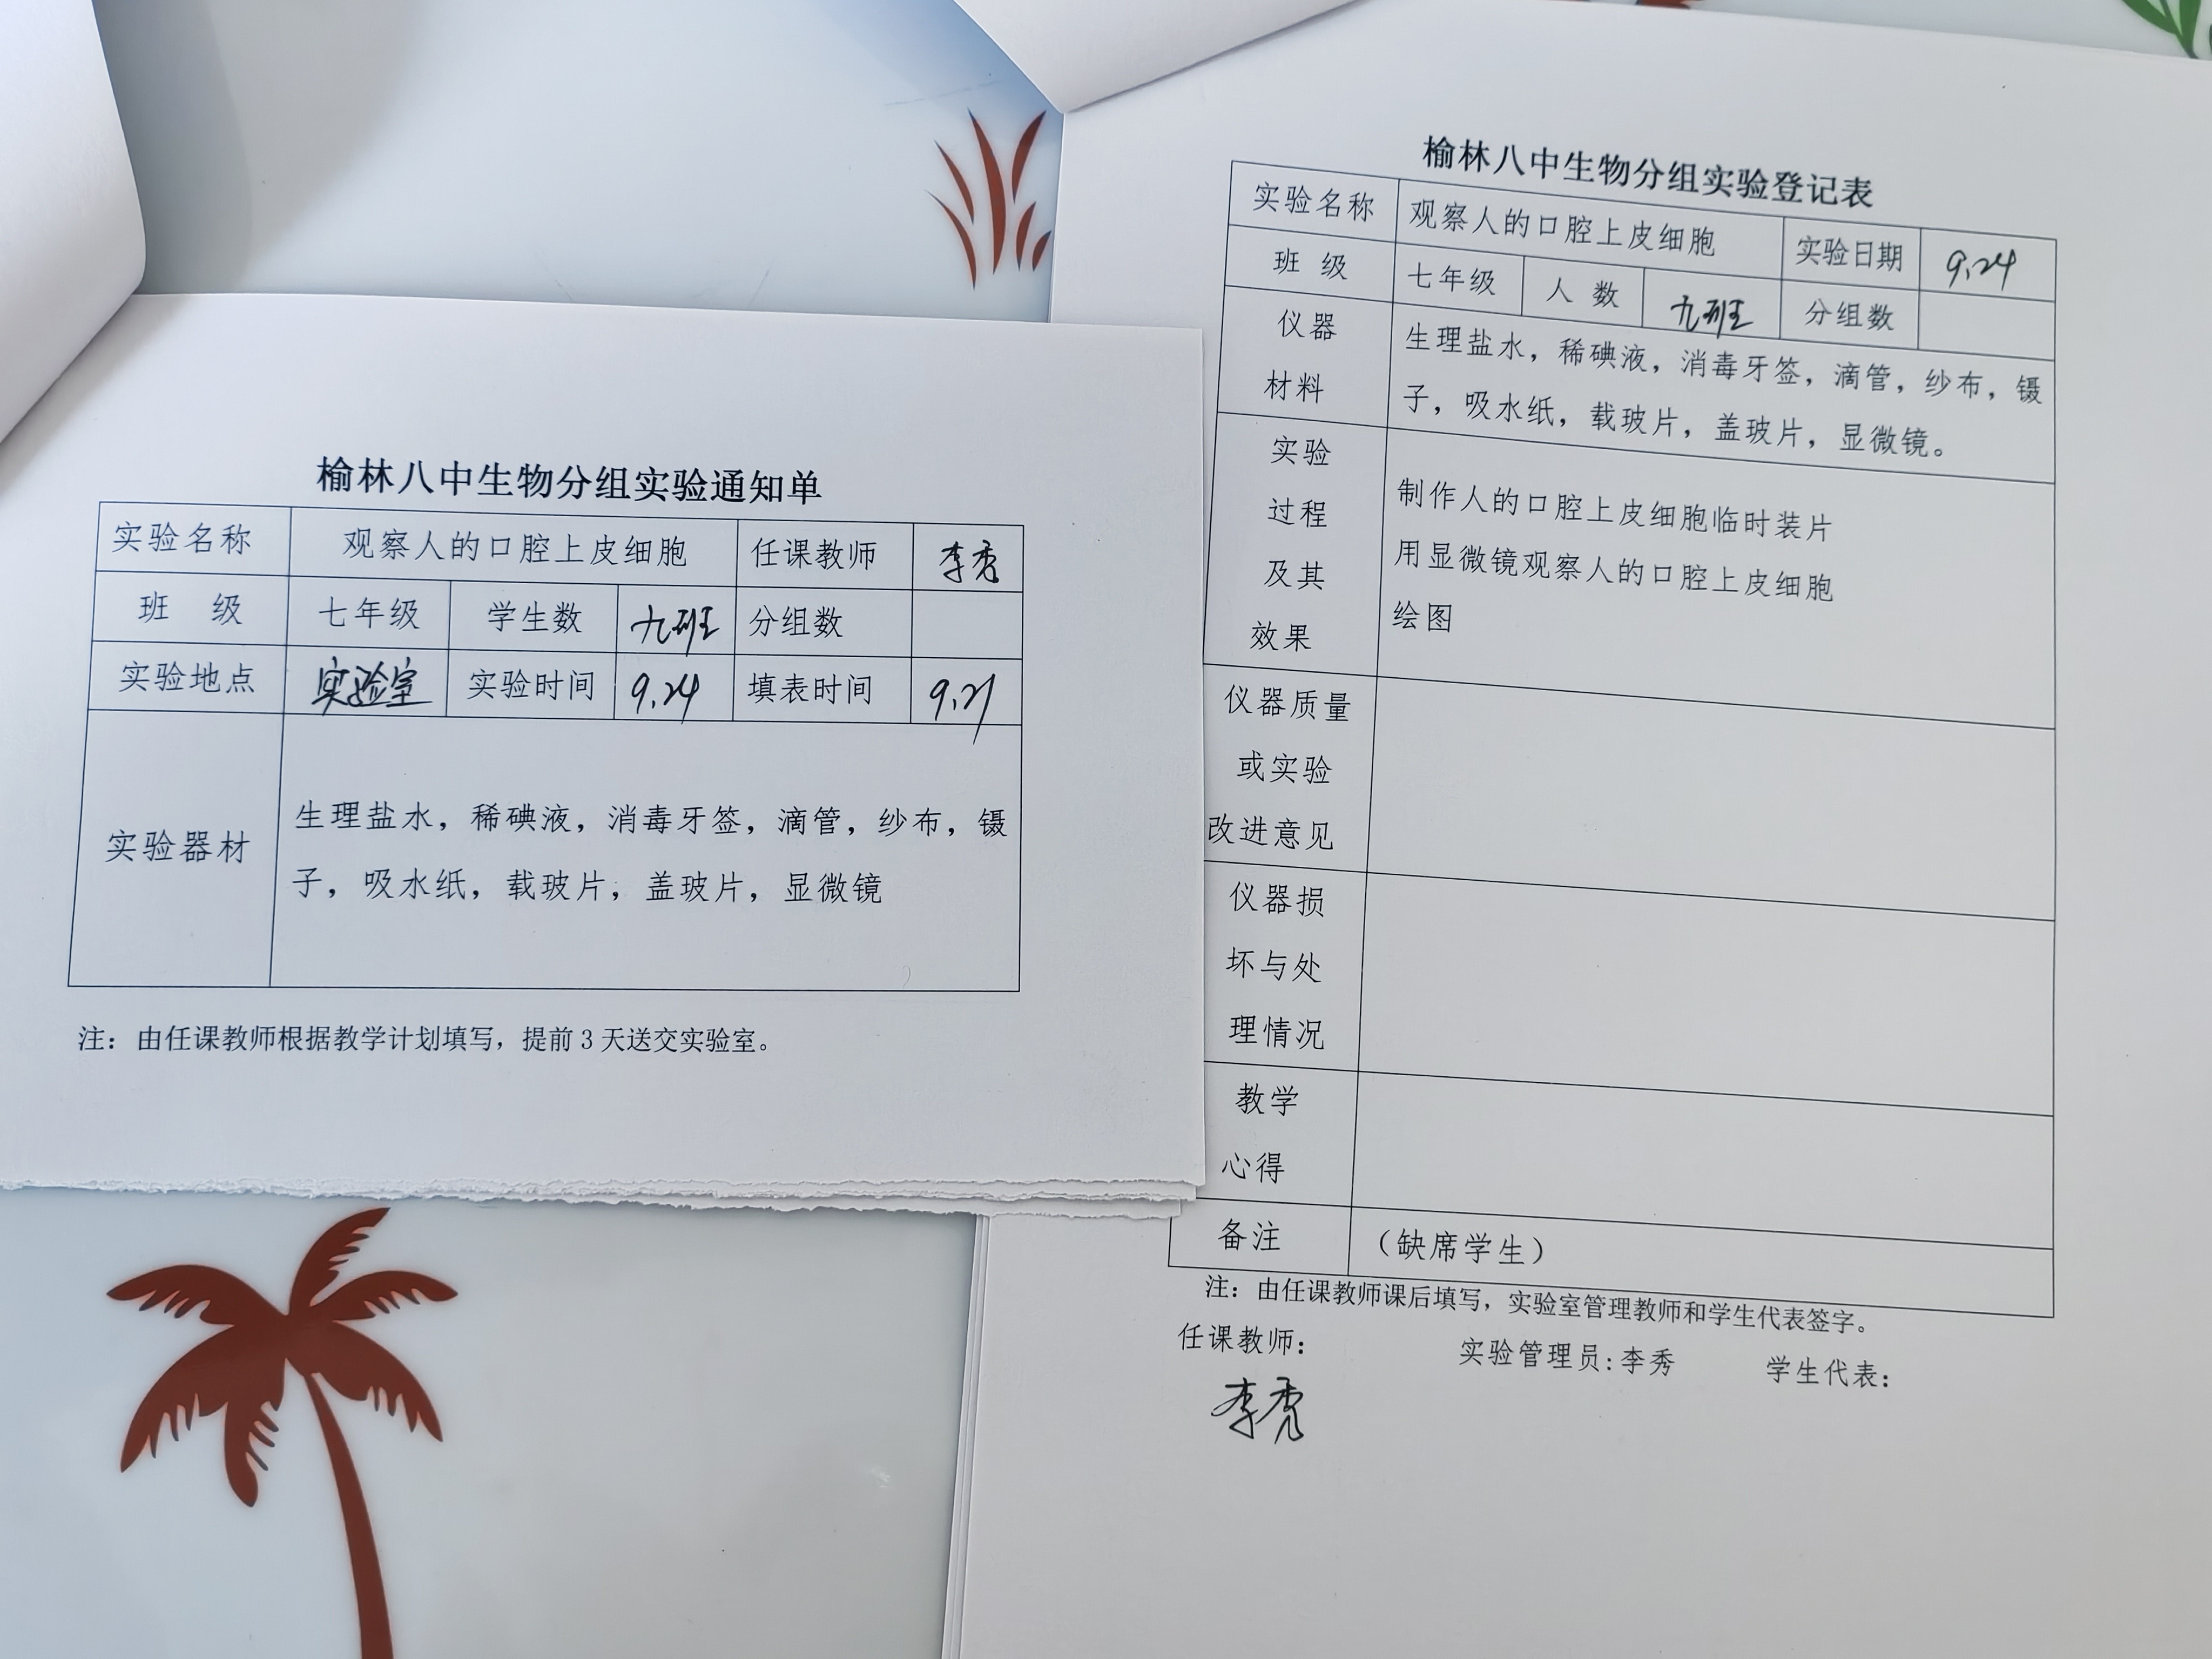 榆林八中生物分组实验通知单
实验名称 观察人的口腔上皮细胞 任课教师 李秀
班 级 七年级 学生数 九班 分组数
实验地点 实验室 实验时间 9.24 填表时间 9.21
实验器材
生理盐水，稀碘液，消毒牙签，滴管，纱布，镊
子，吸水纸，载玻片，盖玻片，显微镜
注：由任课教师根据教学计划填写，提前3天送交实验室。
榆林八中生物分组实验登记表
实验名称 观察人的口腔上皮细胞 实验日期 9.24
班 级 七年级 人 数 九班 分组数
仪器
材料
生理盐水，稀碘液，消毒牙签，滴管，纱布，镊
子，吸水纸，载玻片，盖玻片，显微镜。
实验
过程
及其
效果
制作人的口腔上皮细胞临时装片
用显微镜观察人的口腔上皮细胞
绘图
仪器质量
或实验
改进意见
仪器损
坏与处
理情况
教学
心得
备注 （缺席学生）
注：由任课教师课后填写，实验室管理教师和学生代表签字。
任课教师： 实验管理员:李秀 学生代表：
李秀